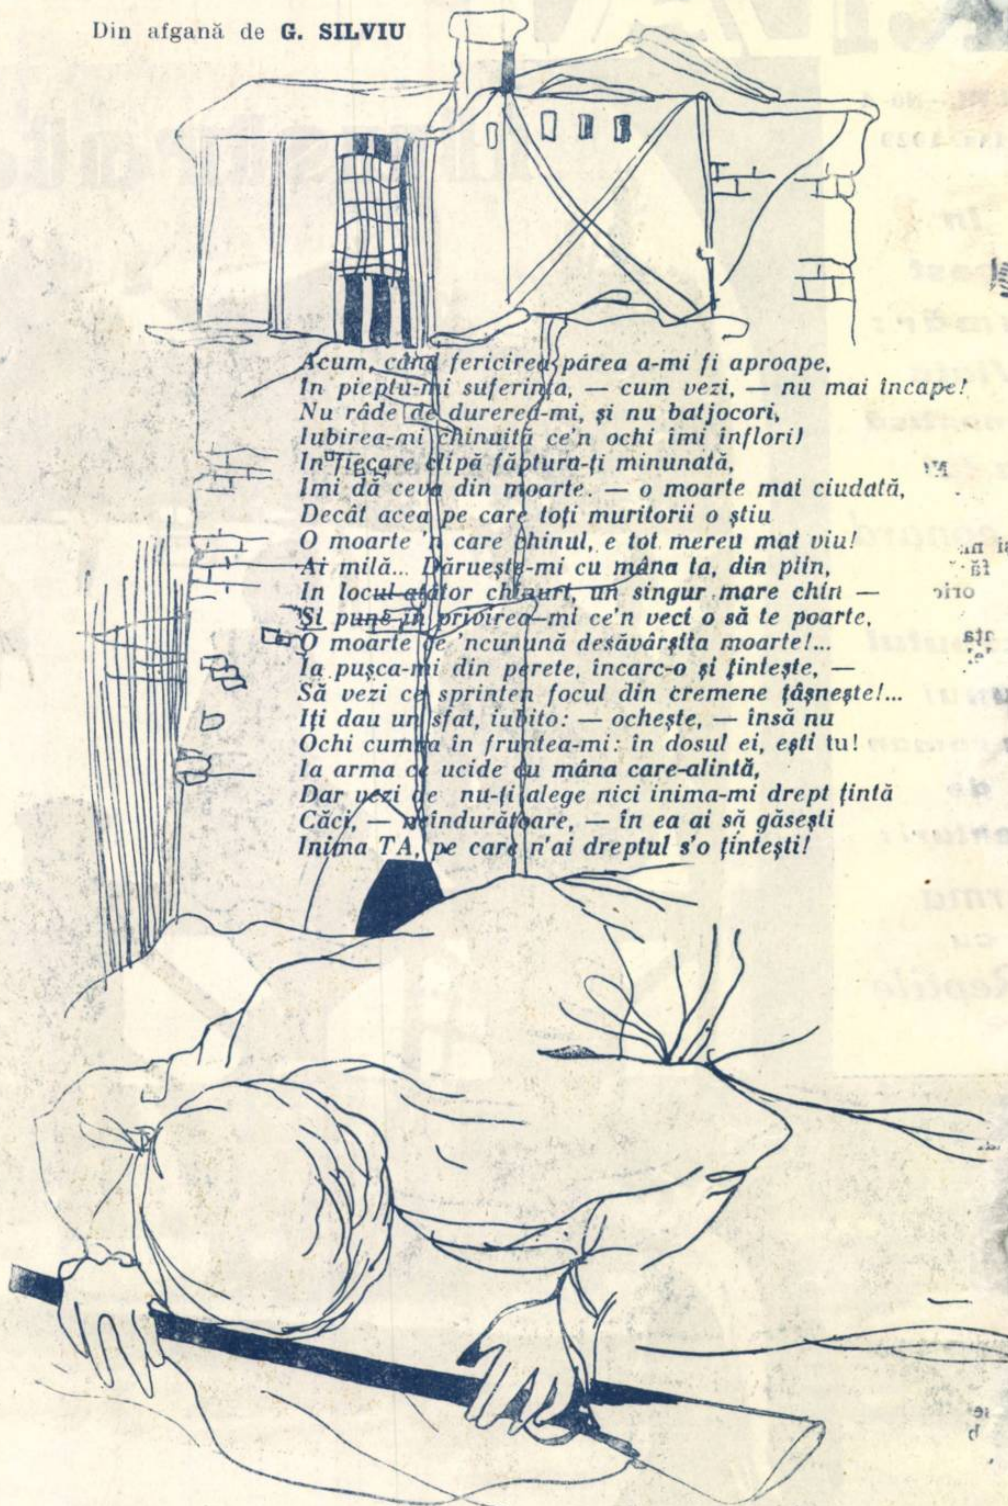 Din afgană de G. SILVIU
Acum, când fericirea părea a-mi fi aproape,
In pieptu-mi suferința, — cum vezi, — nu mai încape!
Nu râde de durerea-mi, și nu batjocori,
Iubirea-mi chinuită ce'n ochi îmi înflori!
In fiecare clipă făptura-ți minunată,
Imi dă ceva din moarte. — o moarte mai ciudată,
Decât acea pe care toți muritorii o știu
O moarte 'n care chinul, e tot mereu mai viu!
Ai milă... Dăruește-mi cu mâna ta, din plin,
In locul atâtor chinuri, un singur mare chin —
Și pune în privirea-mi ce'n veci o să te poarte,
O moarte ce 'ncunună desăvârșita moarte!...
Ia pușca-mi din perete, încarc-o și țintește, —
Să vezi ce sprinten focul din cremene țâșnește!...
Iți dau un sfat, iubito: — ochește, — însă nu
Ochi cumva în fruntea-mi: în dosul ei, ești tu!
Ia arma ce ucide cu mâna care-alintă,
Dar vezi de nu-ți alege nici inima-mi drept țintă
Căci, — neîndurătoare, — în ea ai să găsești
Inima TA, pe care n'ai dreptul s'o țintești!